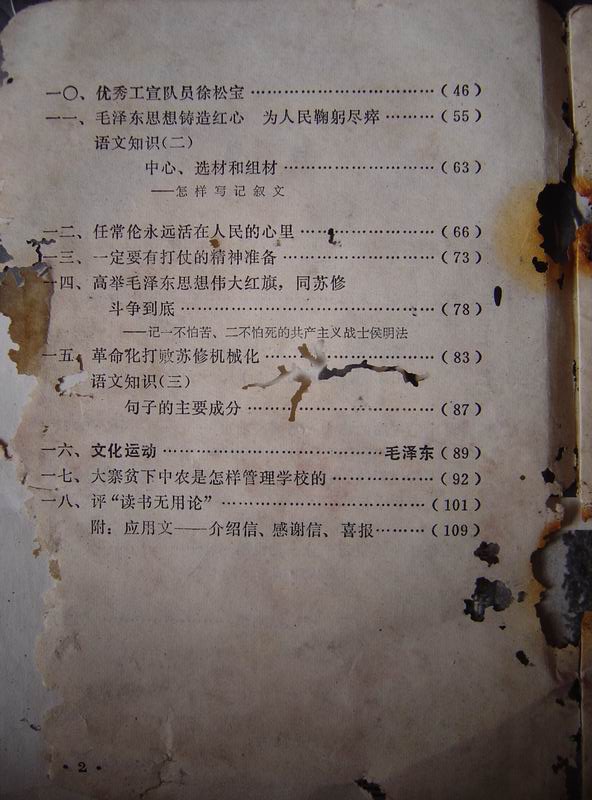 一〇、优秀工宣队员徐松宝……………………………（46）
一一、毛泽东思想铸造红心　为人民鞠躬尽瘁………（55）
语文知识(二)
中心、选材和组材…………………………（63）
——怎样写记叙文
一二、任常伦永远活在人民的心里……………………（66）
一三、一定要有打仗的精神准备………………………（73）
一四、高举毛泽东思想伟大红旗，同苏修
斗争到底………………………………………（78）
——记一不怕苦、二不怕死的共产主义战士侯明法
一五、革命化打败苏修机械化…………………………（83）
语文知识(三)
句子的主要成分………………………………（87）
一六、文化运动……………………………………毛泽东（89）
一七、大寨贫下中农是怎样管理学校的………………（92）
一八、评“读书无用论”………………………………（101）
附：应用文——介绍信、感谢信、喜报………（109）
· 2 ·